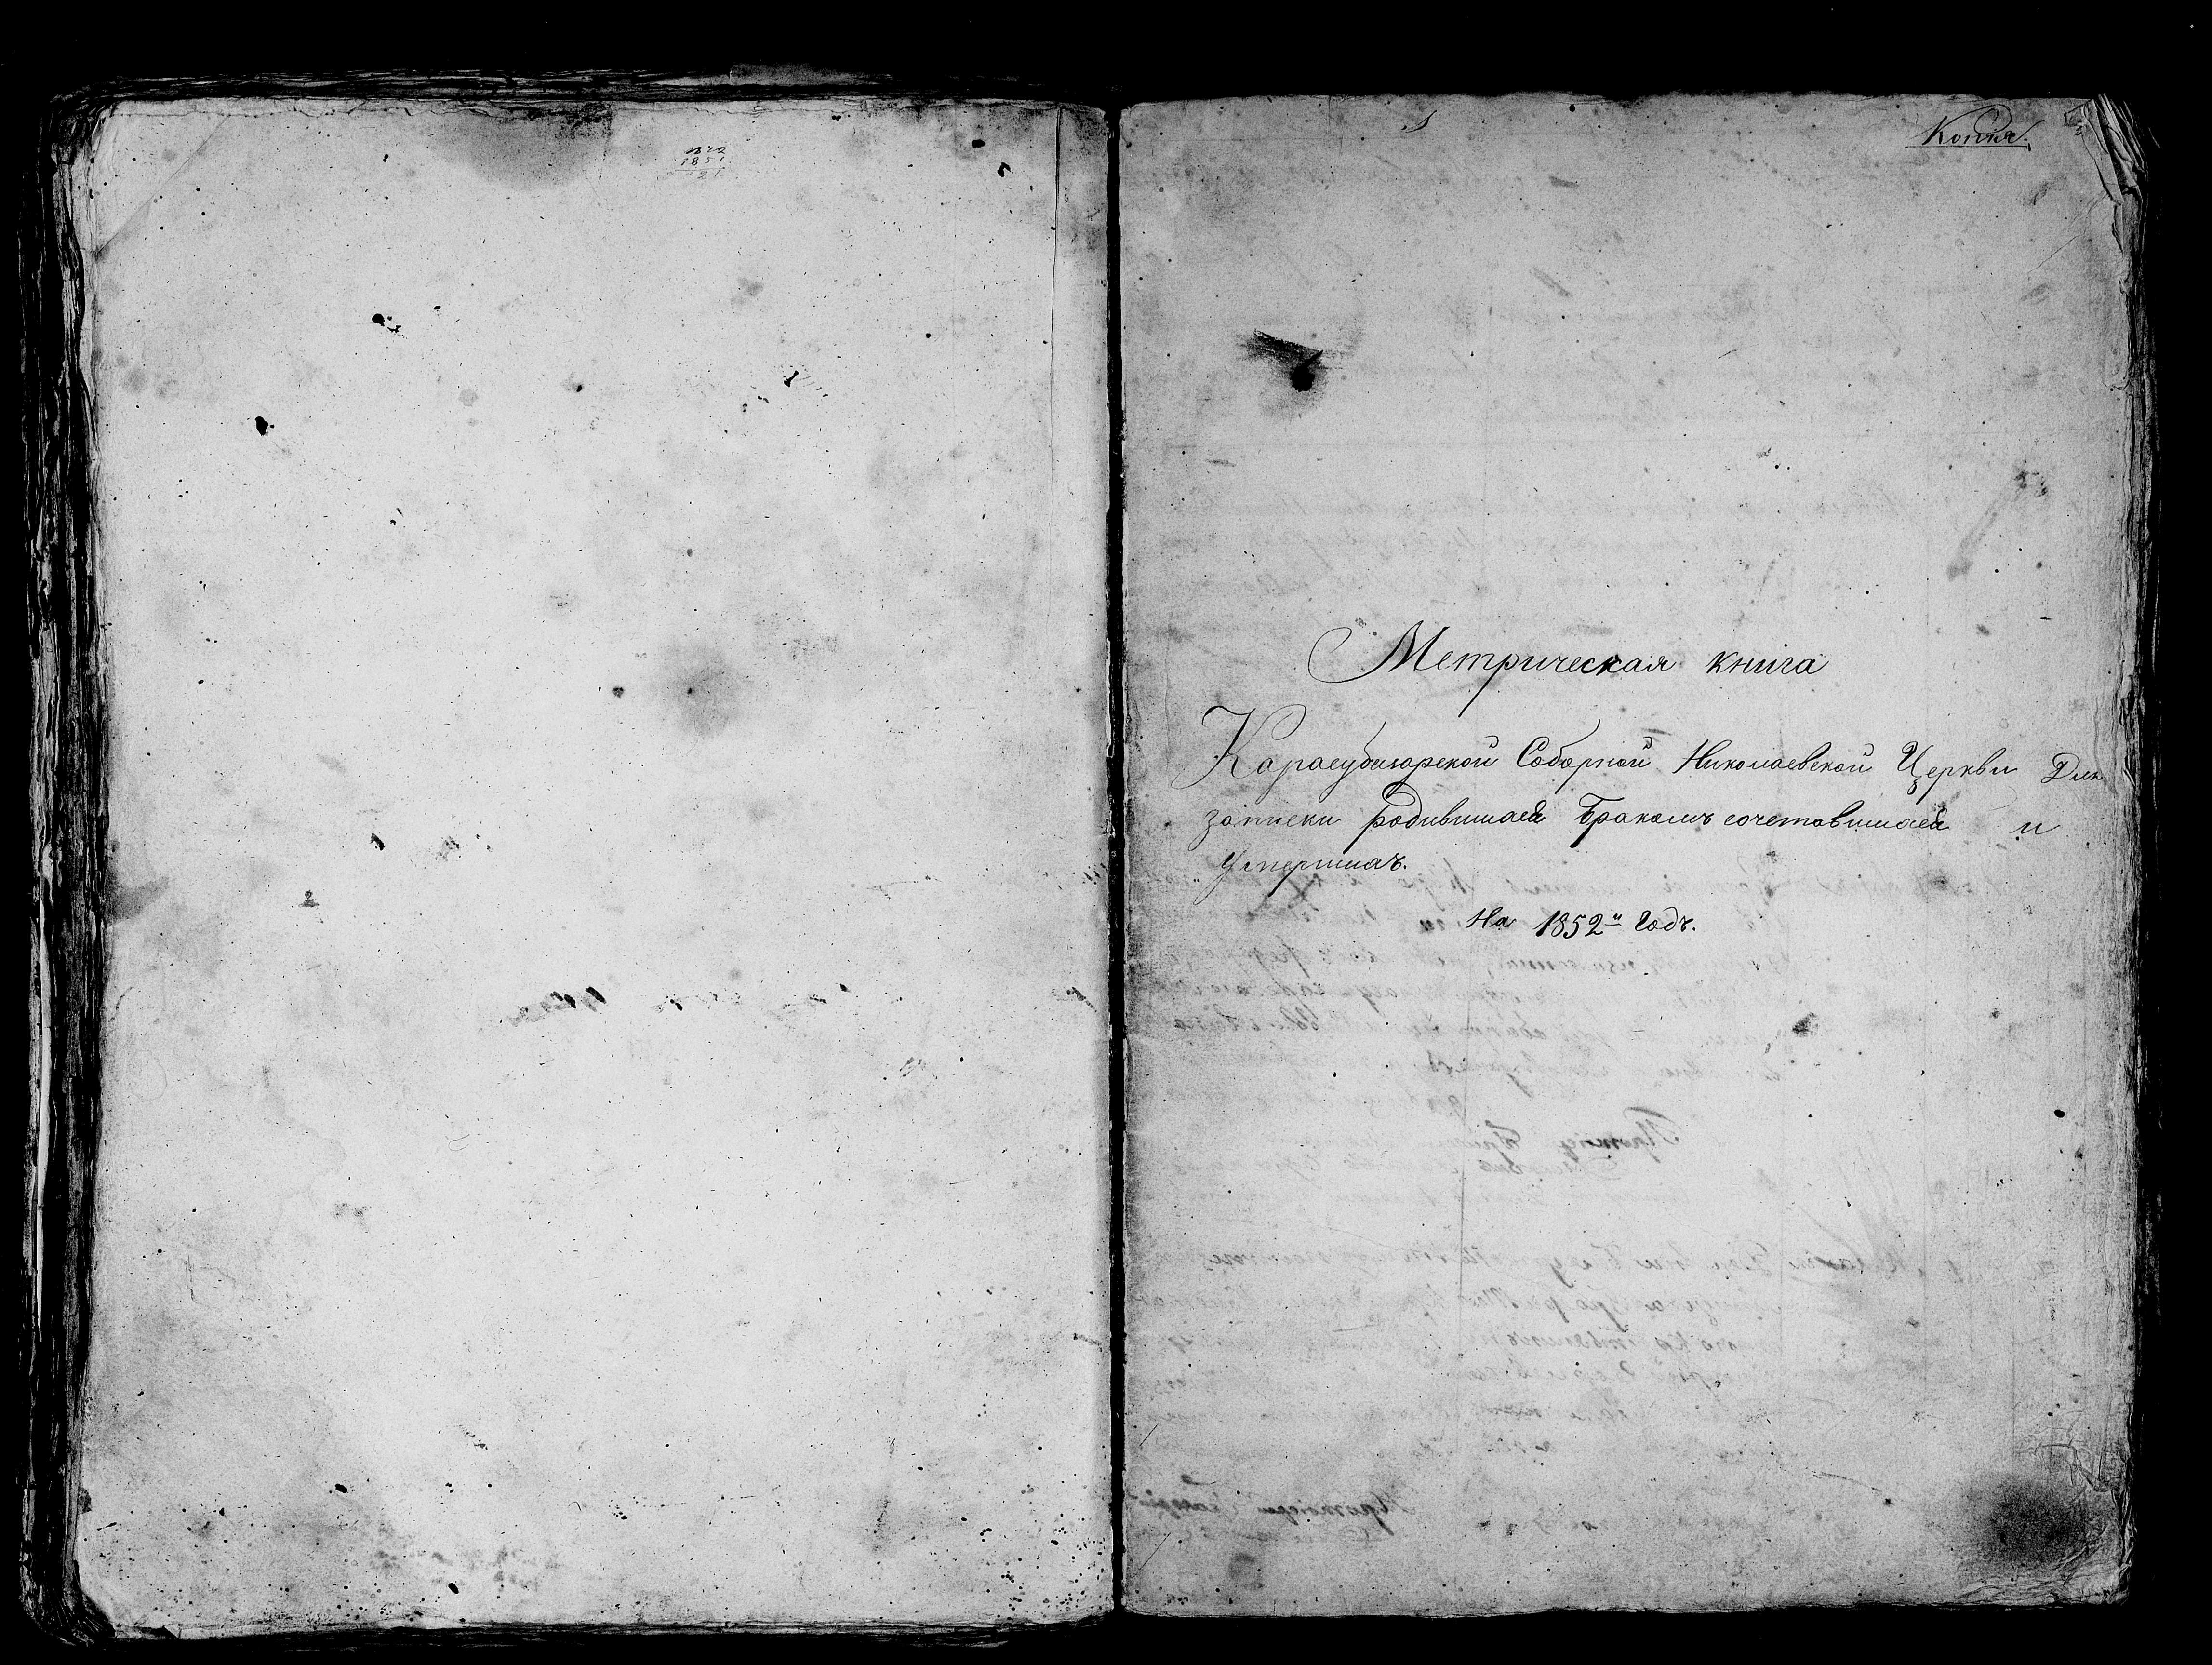 1851
Копія.
Метрическая книга
Карасубазарской Соборной Николаевской Церкви Для
записки родившихся Бракомъ сочетавшихся и
Умершихъ.
На 1852й Годъ.